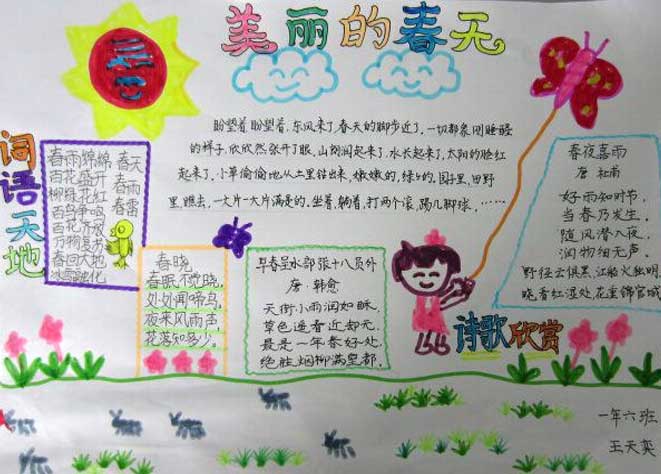 美丽的春天
盼望着,盼望着,东风来了,春天的脚步近了,一切都象刚睡醒
的样子,欣欣然张开了眼,山朗润起来了,水长起来了,太阳的脸红
起来了,小草偷偷地从土里钻出来,嫩嫩的,绿绿的,园子里,田野
里,瞧去,一大片一大片满是的,坐着,躺着,打两个滚,踢几脚球,……
词语天地
春雨绵绵 春天
百花盛开 春雨
柳绿花红 春雷
百鸟争鸣
百花齐放
万物复苏
春回大地
冰雪融化
春晓
春眠不觉晓,
处处闻啼鸟,
夜来风雨声,
花落知多少。
早春呈水部张十八员外
唐 韩愈
天街小雨润如酥,
草色遥看近却无,
最是一年春好处,
绝胜烟柳满皇都,
春夜喜雨
唐 杜甫
好雨知时节,
当春乃发生,
随风潜入夜,
润物细无声,
野径云俱黑,江船火独明,
晓看红湿处,花重锦官城
诗歌欣赏
一年六班
王天奕